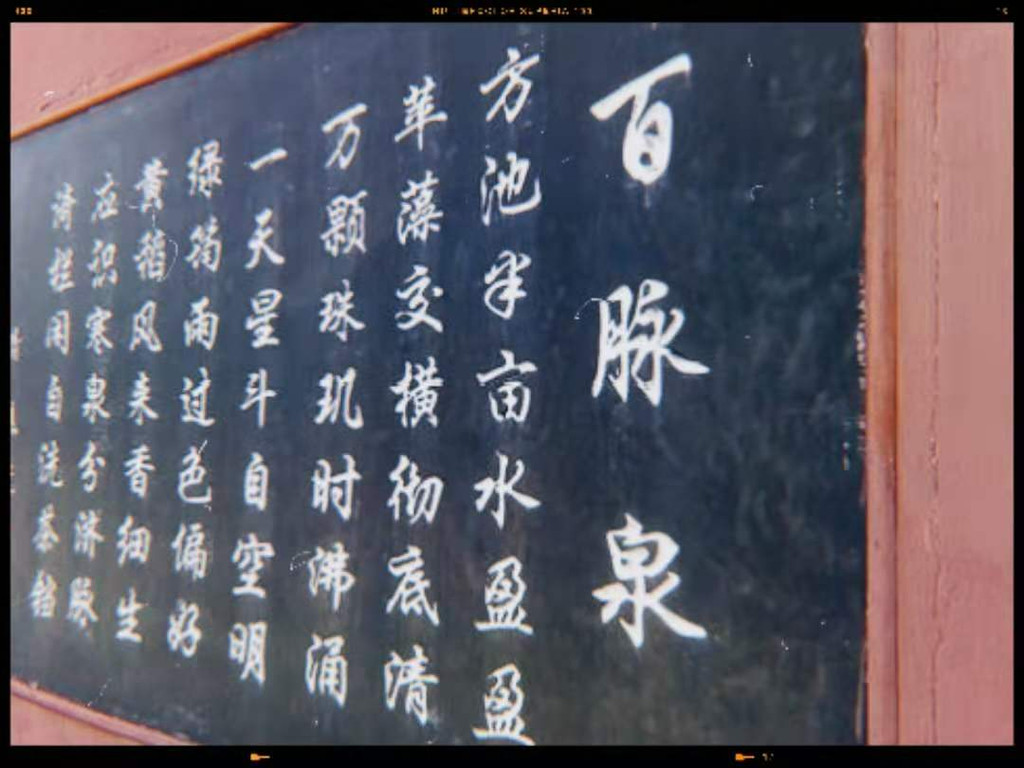 百脉泉
方池半亩水盈盈
萍藻交横彻底清
万颗珠玑时沸涌
一天星斗自空明
绿筠雨过色偏好
黄稻风来香细生
应识寒泉分济脉
闲自洗茶铛